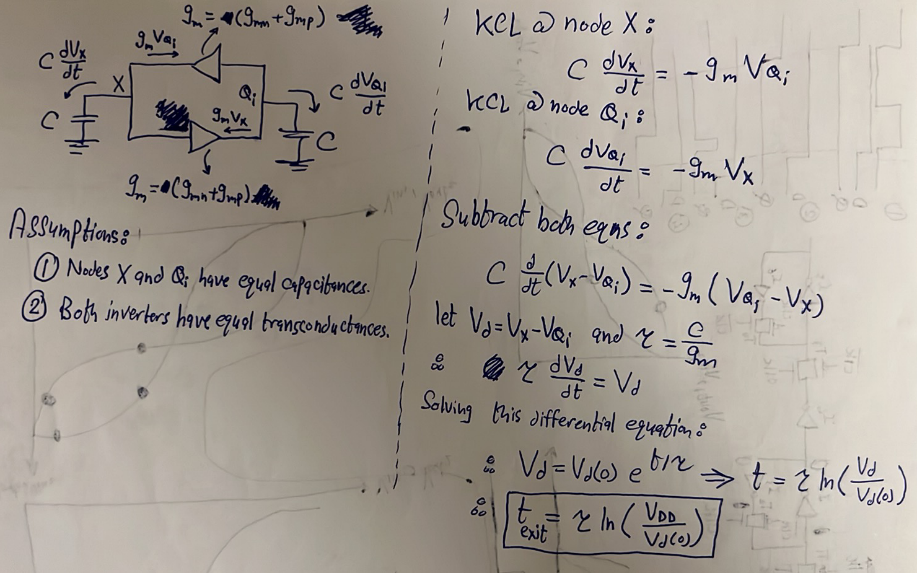 g_m = (g_mn + g_mp)
g_m V_Qi
C dV_x/dt
X
Q_i
C dV_Qi/dt
C
g_m V_x
C
g_m = (g_mn + g_mp)
Assumptions:
① Nodes X and Q_i have equal capacitances.
② Both inverters have equal transconductances.
KCL @ node X:
C dV_x/dt = -g_m V_Qi
KCL @ node Q_i:
C dV_Qi/dt = -g_m V_x
Subtract both eqns:
C d/dt (V_x - V_Qi) = -g_m (V_Qi - V_x)
let V_d = V_x - V_Qi and τ = C/g_m
∴ τ dV_d/dt = V_d
Solving this differential equation:
∴ V_d = V_d(0) e^(t/τ) ⇒ t = τ ln(V_d/V_d(0))
∴ t_exit = τ ln(V_DD/V_d(0))